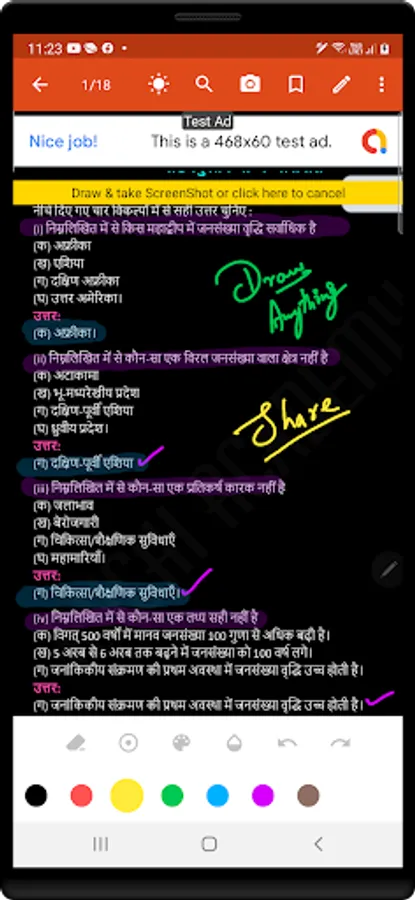 11:23
1/18
Test Ad
Nice job!
This is a 468x60 test ad.
Draw & take ScreenShot or click here to cancel
नीचे दिए गए चार विकल्पों में से सही उत्तर चुनिए :
(i) निम्नलिखित में से किस महाद्वीप में जनसंख्या वृद्धि सर्वाधिक है
(क) अफ्रीका
(ख) एशिया
(ग) दक्षिण अफ्रीका
(घ) उत्तर अमेरिका।
उत्तर:
(क) अफ्रीका।
Draw
Anything
(ii) निम्नलिखित में से कौन-सा एक विरल जनसंख्या वाला क्षेत्र नहीं है
(क) अटाकामा
(ख) भू-मध्यरेखीय प्रदेश
(ग) दक्षिण-पूर्वी एशिया
(घ) ध्रुवीय प्रदेश।
उत्तर:
(ग) दक्षिण-पूर्वी एशिया
Share
(iii) निम्नलिखित में से कौन-सा एक प्रतिकर्ष कारक नहीं है
(क) जलाभाव
(ख) बेरोजगारी
(ग) चिकित्सा/शैक्षणिक सुविधाएँ
(घ) महामारियाँ।
उत्तर:
(ग) चिकित्सा/शैक्षणिक सुविधाएँ।
(iv) निम्नलिखित में से कौन-सा एक तथ्य सही नहीं है
(क) विगत् 500 वर्षों में मानव जनसंख्या 100 गुणा से अधिक बढ़ी है।
(ख) 5 अरब से 6 अरब तक बढ़ने में जनसंख्या को 100 वर्ष लगे।
(ग) जनांकिकीय संक्रमण की प्रथम अवस्था में जनसंख्या वृद्धि उच्च होती है।
उत्तर:
(ग) जनांकिकीय संक्रमण की प्रथम अवस्था में जनसंख्या वृद्धि उच्च होती है।